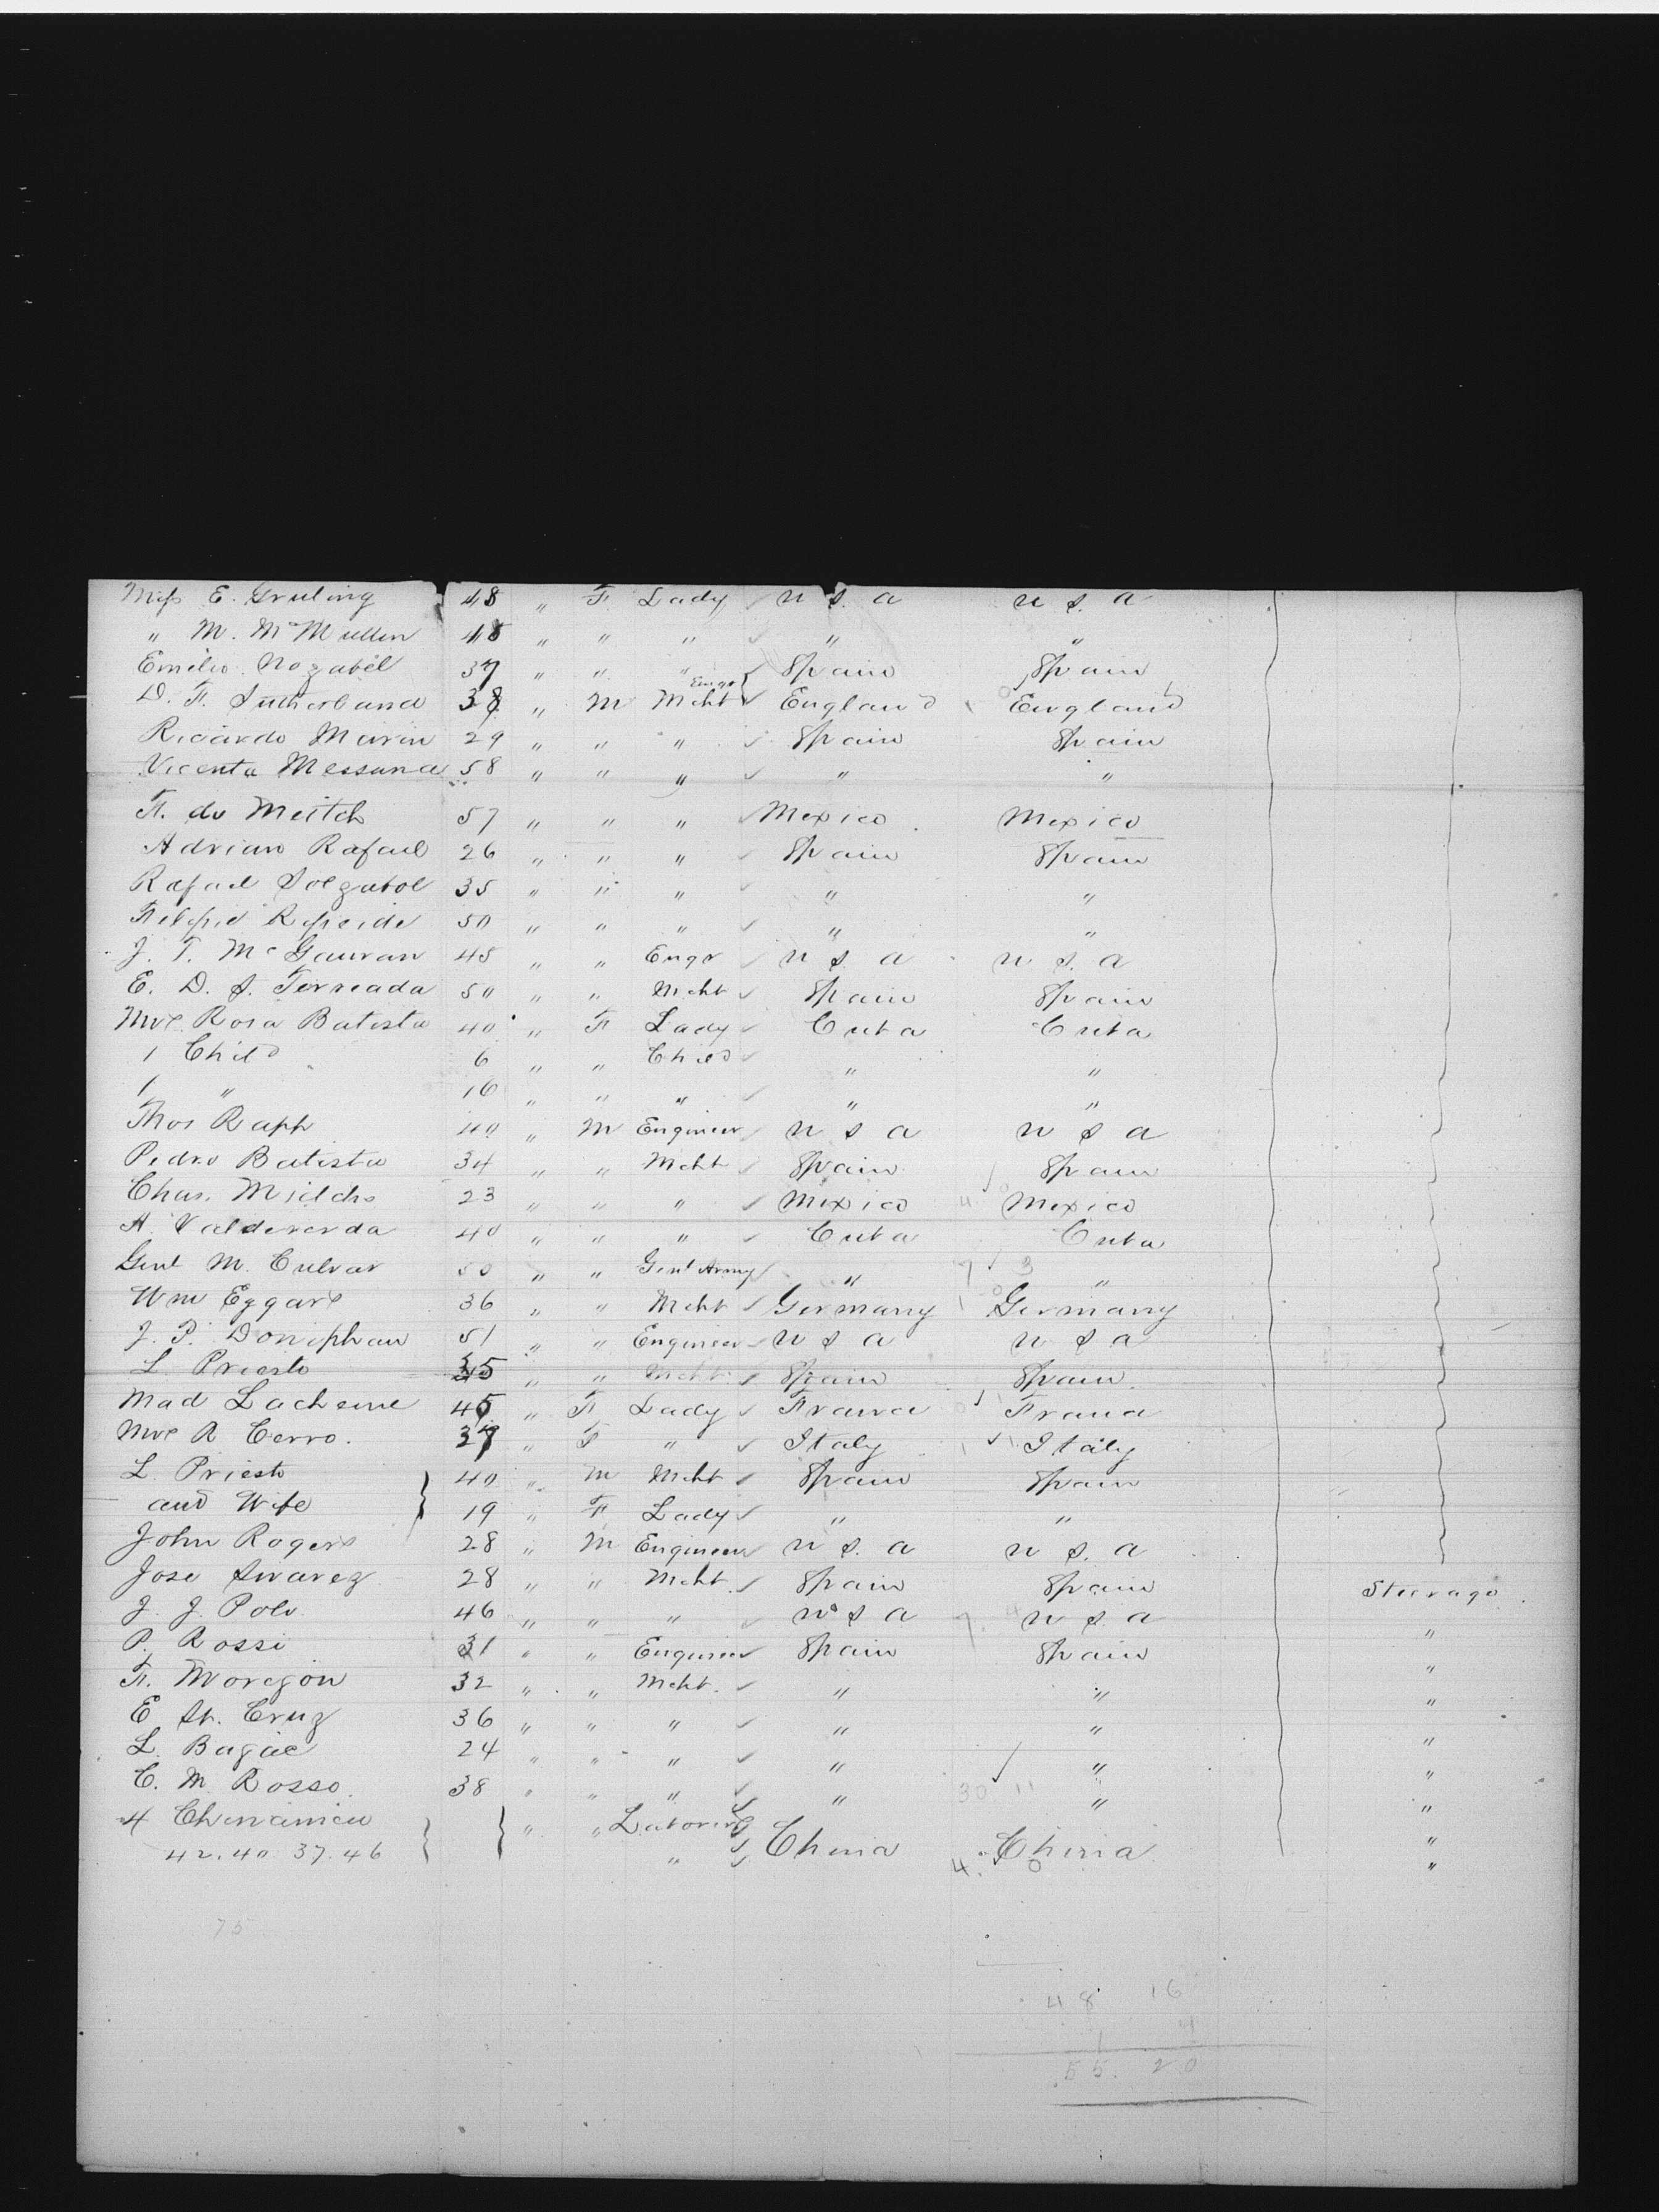 Miss E. Gruling 48 " F Lady U S. A U S. A
" M. McMullin 48 " " " " "
Emelio Nozabel 37 " " " Spain Spain
D. F. Sutherland 38 " M Engr Mcht England England
Ricardo Marin 29 " " " Spain Spain
Vicenta Messuna 58 " " " " "
F. de Meitch 57 " " " Mexico Mexico
Adrian Rafael 26 " " " Spain Spain
Rafael 35 " " " " "
50 " " " " "
J. T. McGauran 45 " " Engr U S. A U S. A
E. D. S. Terreada 50 " " Mcht Spain Spain
Mrs Rosa Batista 40 " F Lady Cuba Cuba
1 Child 6 " " Child " "
1 " 16 " " " " "
Thos Raph 40 " M Engineer U S A U S A
Pedro Batista 34 " " Mcht Spain Spain
Chas. Mields 23 " " " Mexico Mexico
A. Valdererda 40 " " " Cuba Cuba
Genl M. Culvar 50 " " Genl Army " "
Wm Eggars 36 " " Mcht Germany Germany
J. P. Doniphan 51 " " Engineer U S A U S A
L. Priesto 35 " " Mcht Spain Spain
Mad Lacheme 45 " F Lady France France
Mrs R Cerro. 37 " F " Italy Italy
L. Priesto 40 " M Mcht Spain Spain
and Wife 19 " F Lady " "
John Rogers 28 " M Engineer U S. A U S. A
Jose Suarez 28 " " Mcht. Spain Spain Steerage
J. J. Polo 46 " " " U S A U S A "
P. Rossi 31 " " Engineer Spain Spain "
F. Moregon 32 " " Mcht. " " "
E St. Cruz 36 " " " " " "
L. Bagae 24 " " " " " "
C. M. Rosso 38 " " " " " "
4 Chinamen " " Laborers China China "
42. 40 37. 46 " 4. 0 "
75
48 16
1 4
55. 20